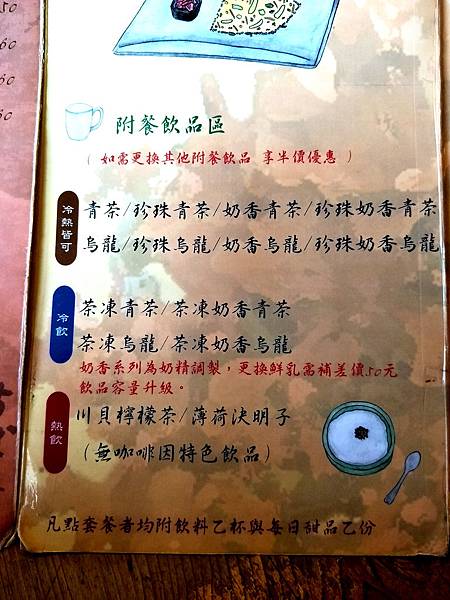 60
60
60
附餐飲品區
( 如需更換其他附餐飲品 享半價優惠 )
冷熱皆可
青茶/珍珠青茶/奶香青茶/珍珠奶香青茶
烏龍/珍珠烏龍/奶香烏龍/珍珠奶香烏龍
冷飲
茶凍青茶/茶凍奶香青茶
茶凍烏龍/茶凍奶香烏龍
奶香系列為奶精調製，更換鮮乳需補差價50元
飲品容量升級。
熱飲
川貝檸檬茶/薄荷決明子
(無咖啡因特色飲品)
凡點套餐者均附飲料乙杯與每日甜品乙份